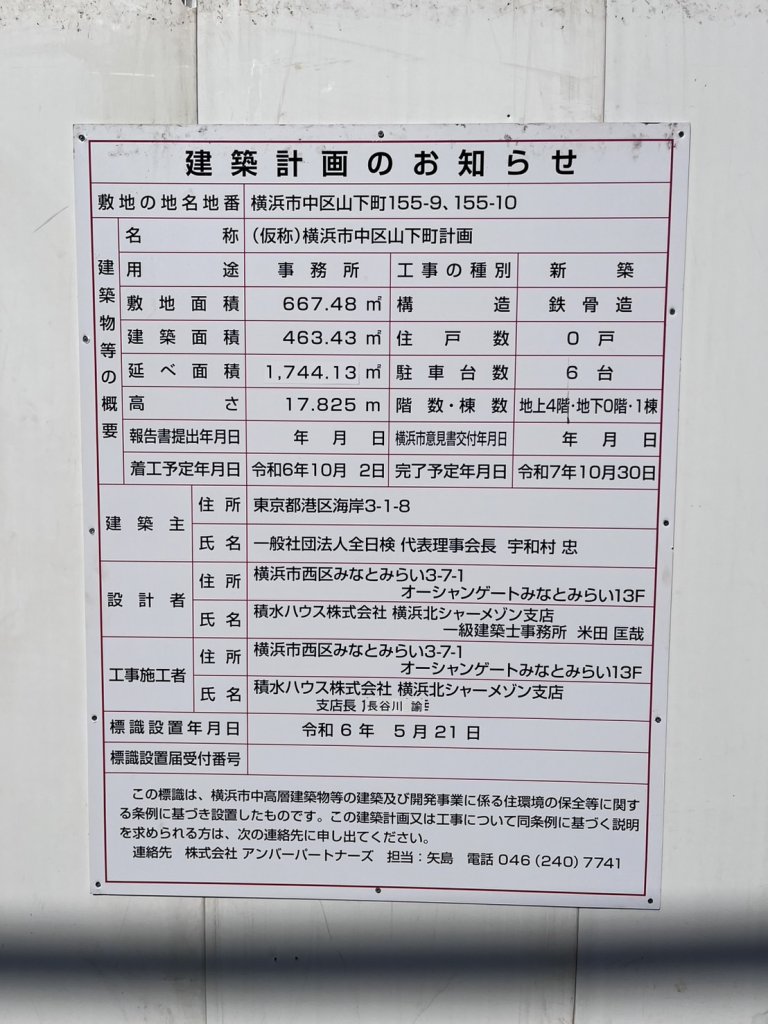 建築計画のお知らせ
敷地の地名地番 横浜市中区山下町155-9、155-10
建築物等の概要
名称 (仮称)横浜市中区山下町計画
用途 事務所 工事の種別 新築
敷地面積 667.48 ㎡ 構造 鉄骨造
建築面積 463.43 ㎡ 住戸数 0 戸
延べ面積 1,744.13 ㎡ 駐車台数 6 台
高さ 17.825 m 階数・棟数 地上4階・地下0階・1棟
報告書提出年月日 年 月 日 横浜市意見書交付年月日 年 月 日
着工予定年月日 令和6年10月 2日 完了予定年月日 令和7年10月30日
建築主 住所 東京都港区海岸3-1-8
氏名 一般社団法人全日検 代表理事会長 宇和村 忠
設計者 住所 横浜市西区みなとみらい3-7-1
オーシャンゲートみなとみらい13F
氏名 積水ハウス株式会社 横浜北シャーメゾン支店
一級建築士事務所 米田 匡哉
工事施工者 住所 横浜市西区みなとみらい3-7-1
オーシャンゲートみなとみらい13F
氏名 積水ハウス株式会社 横浜北シャーメゾン支店
支店長 長谷川 諭
標識設置年月日 令和 6 年 5 月 21 日
標識設置届受付番号
この標識は、横浜市中高層建築物等の建築及び開発事業に係る住環境の保全等に関す
る条例に基づき設置したものです。この建築計画又は工事について同条例に基づく説明
を求められる方は、次の連絡先に申し出てください。
連絡先 株式会社 アンバーパートナーズ 担当：矢島 電話 046 (240) 7741